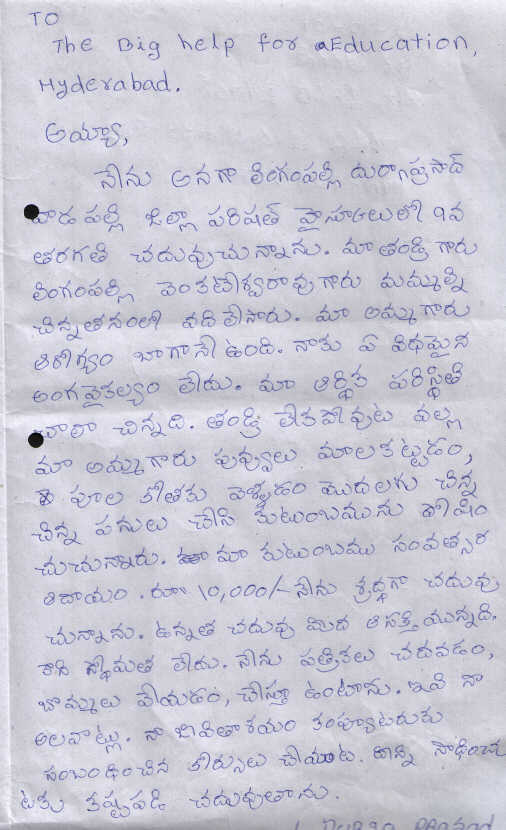 TO
The Big help for Education,
Hyderabad.
అయ్యా,
నేను అనగా లింగంపల్లి దుర్గాప్రసాద్
వాడపల్లి జిల్లా పరిషత్ హైస్కూలులో 9వ
తరగతి చదువుచున్నాను. మా తండ్రి గారు
లింగంపల్లి వెంకటేశ్వరావు గారు మమ్మల్ని
చిన్నతనంలో వదిలేసారు. మా అమ్మగారు
ఆరోగ్యం బాగానే ఉంది. నాకు ఏ విధమైన
అంగవైకల్యం లేదు. మా ఆర్థిక పరిస్థితి
చాలా చిన్నది. తండ్రి లేకపోవుట వల్ల
మా అమ్మగారు పువ్వులు మాలకట్టడం,
పూల కోతకు వెళ్ళడం మొదలగు చిన్న
చిన్న పనులు చేసి కుటుంబమును పోషిం
చుచున్నారు. మా కుటుంబము సంవత్సర
ఆదాయం. రూ 10,000/- నేను శ్రద్ధగా చదువు
చున్నాను. ఉన్నత చదువు మీద ఆసక్తి యున్నది.
కాని స్థోమత లేదు. నేను పత్రికలు చదవడం,
బొమ్మలు వేయడం, చేస్తూ ఉంటాను. ఇవి నా
అలవాట్లు. నా జీవితాశయం కంప్యూటరుకు
సంబంధించిన కోర్సులు చేయుట. దాన్ని సాధించు
టకు కష్టపడి చదువుతాను.